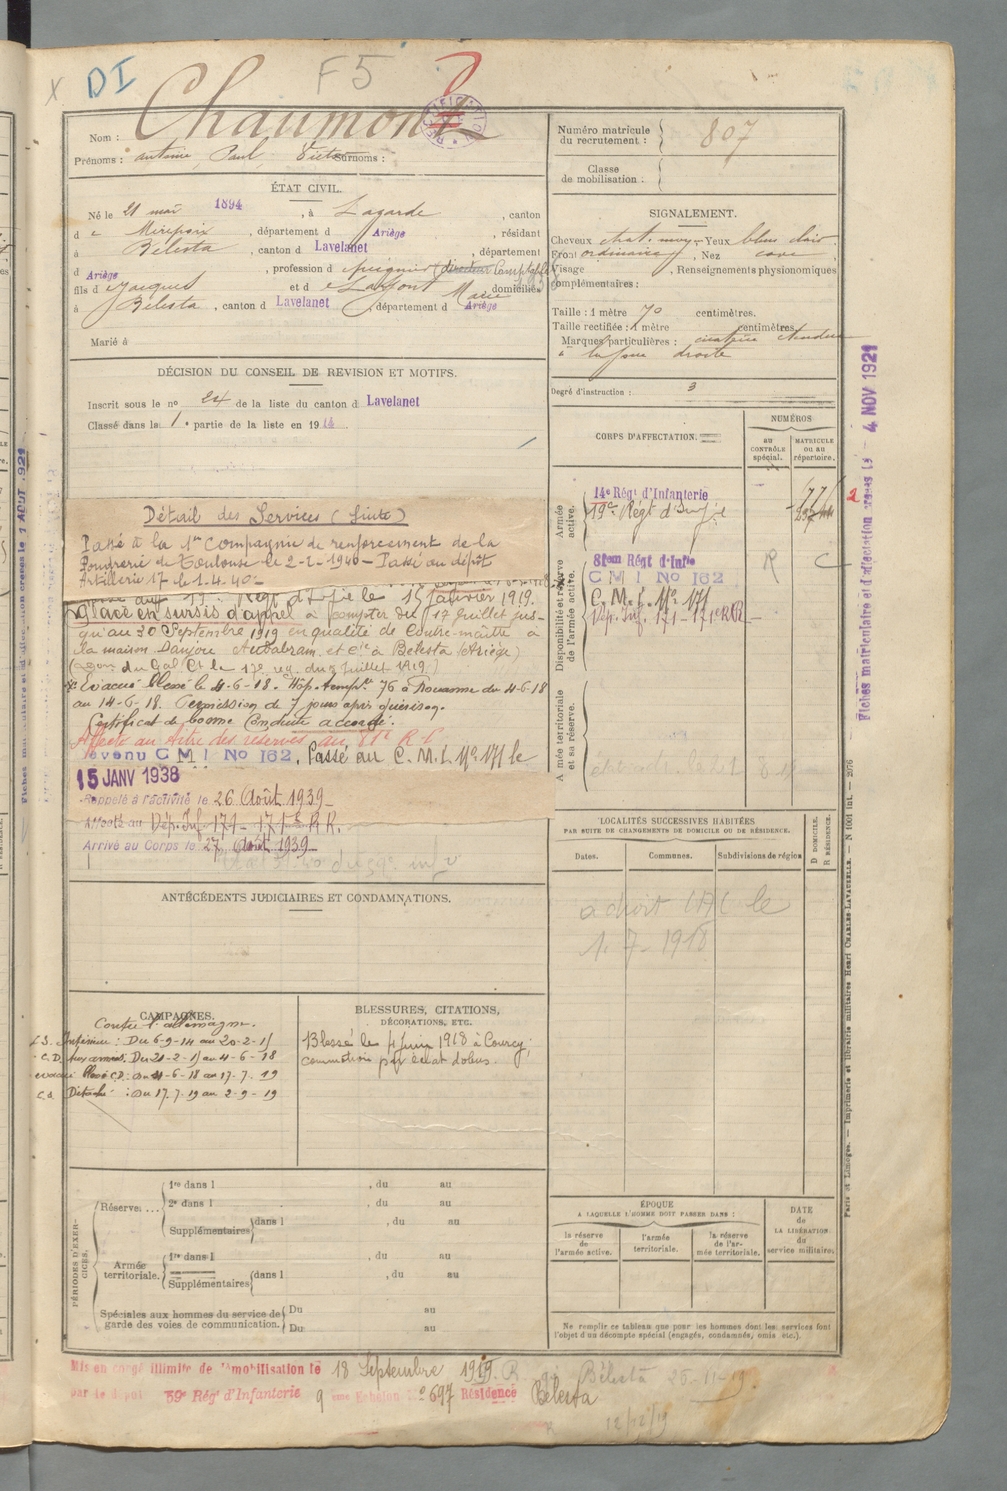 X DI F5
Chaumont
RECTIFICATION
Nom :
Prénoms : antoine, Paul, Victor Surnoms :
ÉTAT CIVIL.
Né le 21 mai 1894, à Lagarde, canton
d e Mirepoix, département d Ariège, résidant
à Bélesta, canton d Lavelanet, département
d Ariège, profession d Comptable
fils d e Jacques et d e Lafont Marie domiciliés
à Bélesta, canton d Lavelanet, département d Ariège
Marié à
DÉCISION DU CONSEIL DE REVISION ET MOTIFS.
Inscrit sous le no 24 de la liste du canton d Lavelanet
Classé dans le 1e partie de la liste en 1914
Détail des Services (Suite)
Passé à la 1re Compagnie de renforcement de la
Poudrerie de Toulouse le 2-2-1940 - Passé au dépôt
Artillerie 17 le 1.4.40-
Régt d'Infie le 15 janvier 1919.
Placé en sursis d'appel à compter du 17 Juillet jus-
qu'au 30 Septembre 1919 en qualité de Contre-maître à
la maison Danjou Authabram et Cie à Bélesta (Ariège)
Evacué blessé le 4-6-18. Hôp. temp. 76 à Roanne du 4-6-18
au 14-6-18. Permission de 7 jours après guérison.
Certificat de bonne Conduite accordé.
Affecté au titre des réserves au 81e R.I.
devenu C M I No 162. Passé au C.M.I. No 171 le
15 JANV 1938
Rappelé à l'activité le 26 Août 1939-
Affecté au Dép. Inf. 171 - 171e R.R.
Arrivé au Corps le 27 Août 1939-
ANTÉCÉDENTS JUDICIAIRES ET CONDAMNATIONS.
CAMPAGNES.
Contre l'allemagne.
Intérieur : Du 6-9-14 au 20-2-15
C.D. Aux armées: Du 21-2-15 au 4-6-18
evacué blessé C.D: Du 4-6-18 au 17-7-19
Détaché : Du 17.7.19 au 2-9-19
BLESSURES, CITATIONS,
DÉCORATIONS, ETC.
Blessé le 4 juin 1918 à Courcy;
commotion par éclat d'obus.
PÉRIODES D'EXERCICES.
Réserve....
1re dans l , du au
2e dans l , du au
Supplémentaires dans l , du au
Armée territoriale.
1re dans l , du au
Supplémentaires dans l , du au
Spéciales aux hommes du service de garde des voies de communication.
Du au
Du au
Mis en congé illimité de démobilisation le 18 Septembre 1919.
par le dépôt 59e Rég' d'Infanterie 9 eme Echelon No 697 Résidence Bélesta
R. Bélesta 25-11-19.
12/12/19
Numéro matricule du recrutement : 807
Classe de mobilisation :
SIGNALEMENT.
Cheveux chat. moy. Yeux bleu clair
Front ordinaire, Nez cave
Visage , Renseignements physionomiques
complémentaires :
Taille : 1 mètre 70 centimètres.
Taille rectifiée : 1 mètre centimètres.
Marques particulières : cicatrice étendue
à la joue droite
Degré d'instruction : 3
CORPS D'AFFECTATION.
NUMÉROS
AU CONTRÔLE spécial.
MATRICULE OU AU répertoire.
Armée active.
14e Régt d'Infanterie
19e Régt d'Infie
Disponibilité et réserve de l'armée active.
81em Régt d'Infie R C
C M I No 162
C.M.I. No 171
Dép. Inf. 171 - 171e R.R.
Armée territoriale et sa réserve.
LOCALITÉS SUCCESSIVES HABITÉES
PAR SUITE DE CHANGEMENTS DE DOMICILE OU DE RÉSIDENCE.
Dates.
Communes.
Subdivisions de région
D DOMICILE.
R RÉSIDENCE.
a droit CAC le
1. 7 - 1918
ÉPOQUE
A LAQUELLE L'HOMME DOIT PASSER DANS :
la réserve de l'armée active.
l'armée territoriale.
la réserve de l'armée territoriale.
DATE de LA LIBÉRATION du service militaire.
Ne remplir ce tableau que pour les hommes dont les services font
l'objet d'un décompte spécial (engagés, condamnés, omis etc.).
Fiches matriculaire et d'affectation créées le - 4 NOV 1921
Paris et Limoges. — Imprimerie et librairie militaires Henri CHARLES-LAVAUZELLE. — N 1001 int. — 2076